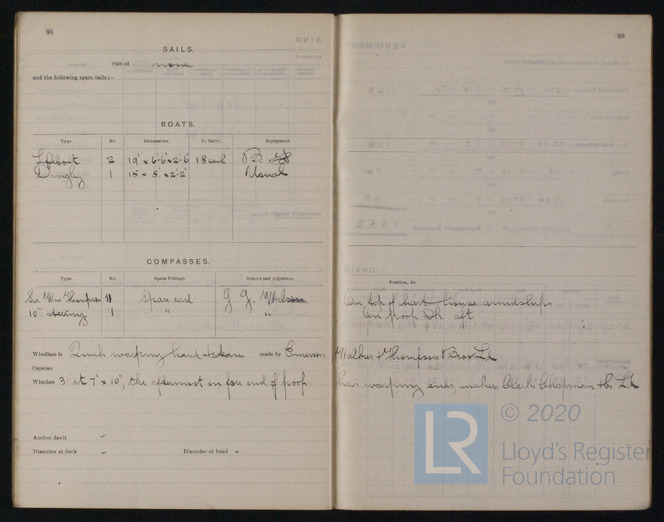 88
SAILS.
Suit of none
and the following spare Sails:—
BOATS.
Type. No. Dimensions. To Carry. Equipment.
Lifeboat 2 19' x 6'-6" x 2'-6" 18 each
Dinghy 1 15 x 5 x 2'-2" Usual
COMPASSES.
Type. No. Spare Fittings. Makers and Adjusters.
Sir Wm Thompson 1 Spare card
10" steering 1 " "
Windlass is Quick warping hand & steam made by Emerson
Capstan
Winches 3 at 7" x 10", the aftermost on fore end of poop
Anchor davit
Diameter at deck
Diameter at head
89
Position, &c.
On top of chart house amidships
On poop Dk aft
Walker & Thompson Bros Ld
has warping ends, maker Clarke Chapman & Co Ld
© 2020
LR
Lloyd's Register
Foundation